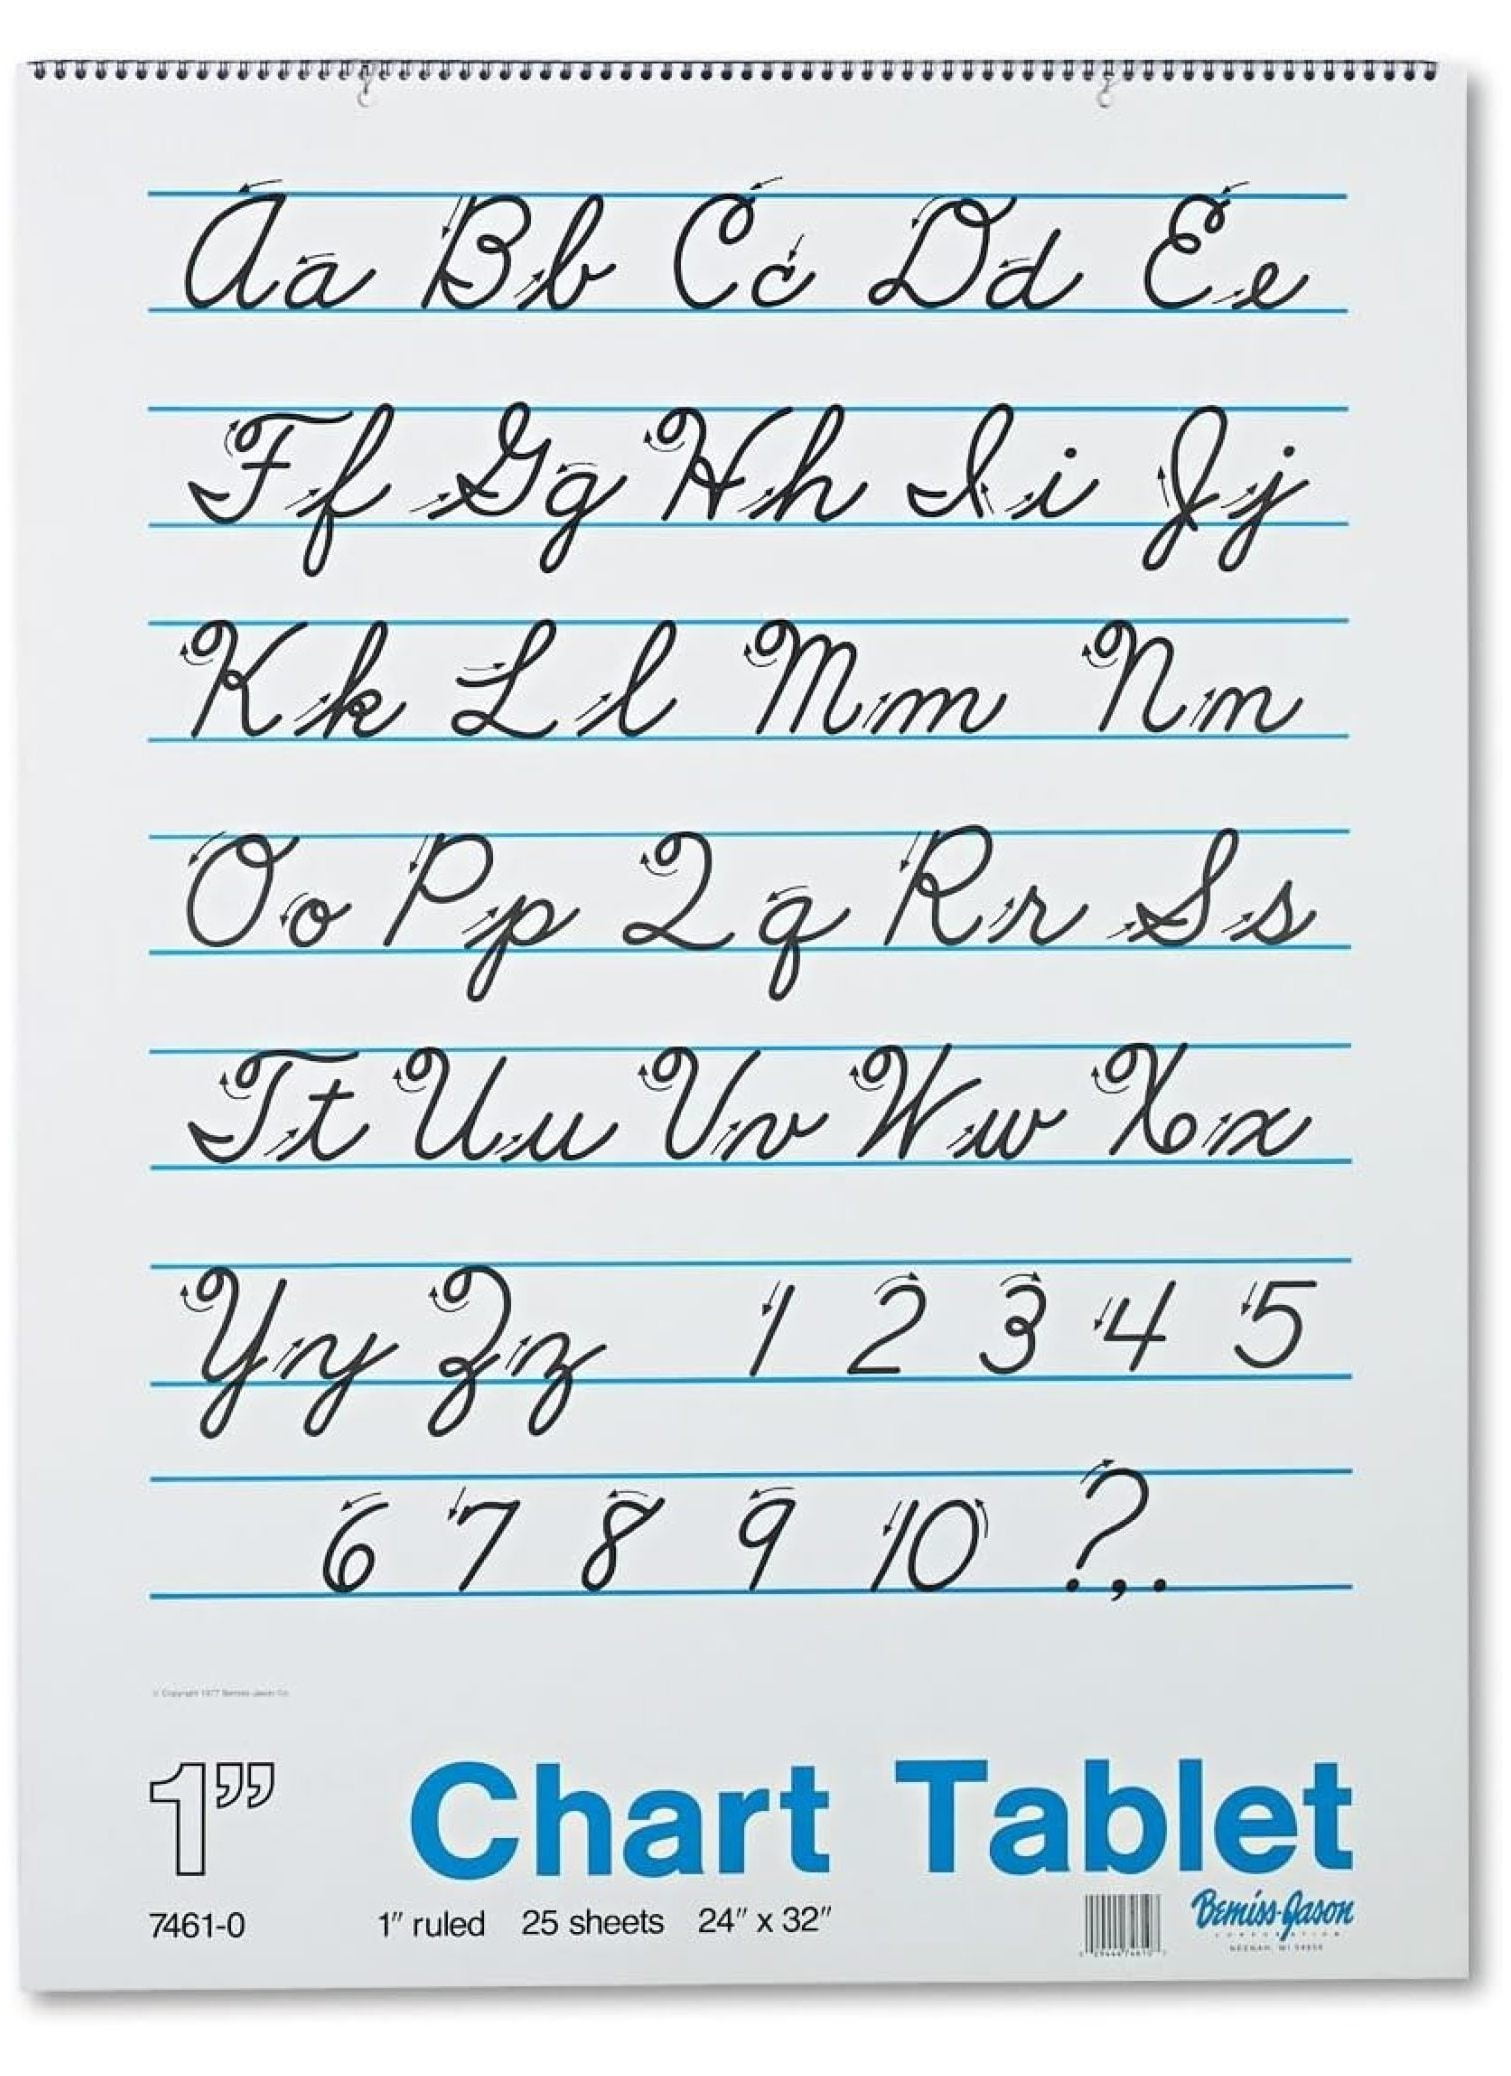 Aa Bb Cc Dd Ee
Ff Gg Hh Ii Jj
Kk Ll Mm Nn
Oo Pp Qq Rr Ss
Tt Uu Vv Ww Xx
Yy Zz 1 2 3 4 5
6 7 8 9 10 ? , .
© Copyright 1977 Bemiss-Jason Co.
1” Chart Tablet
7461-0 1″ ruled 25 sheets 24″ x 32″
Bemiss-Jason
CORPORATION
NEENAH, WI